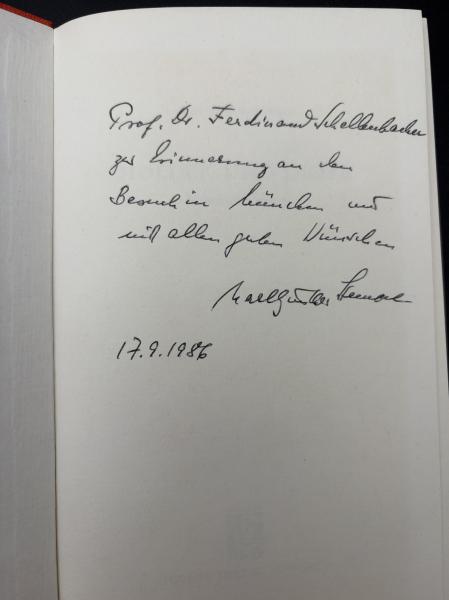 Prof. Dr. Ferdinand Schellenbacher
zur Erinnerung an den
Besuch in München und
mit allen guten Wünschen
17.9.1986